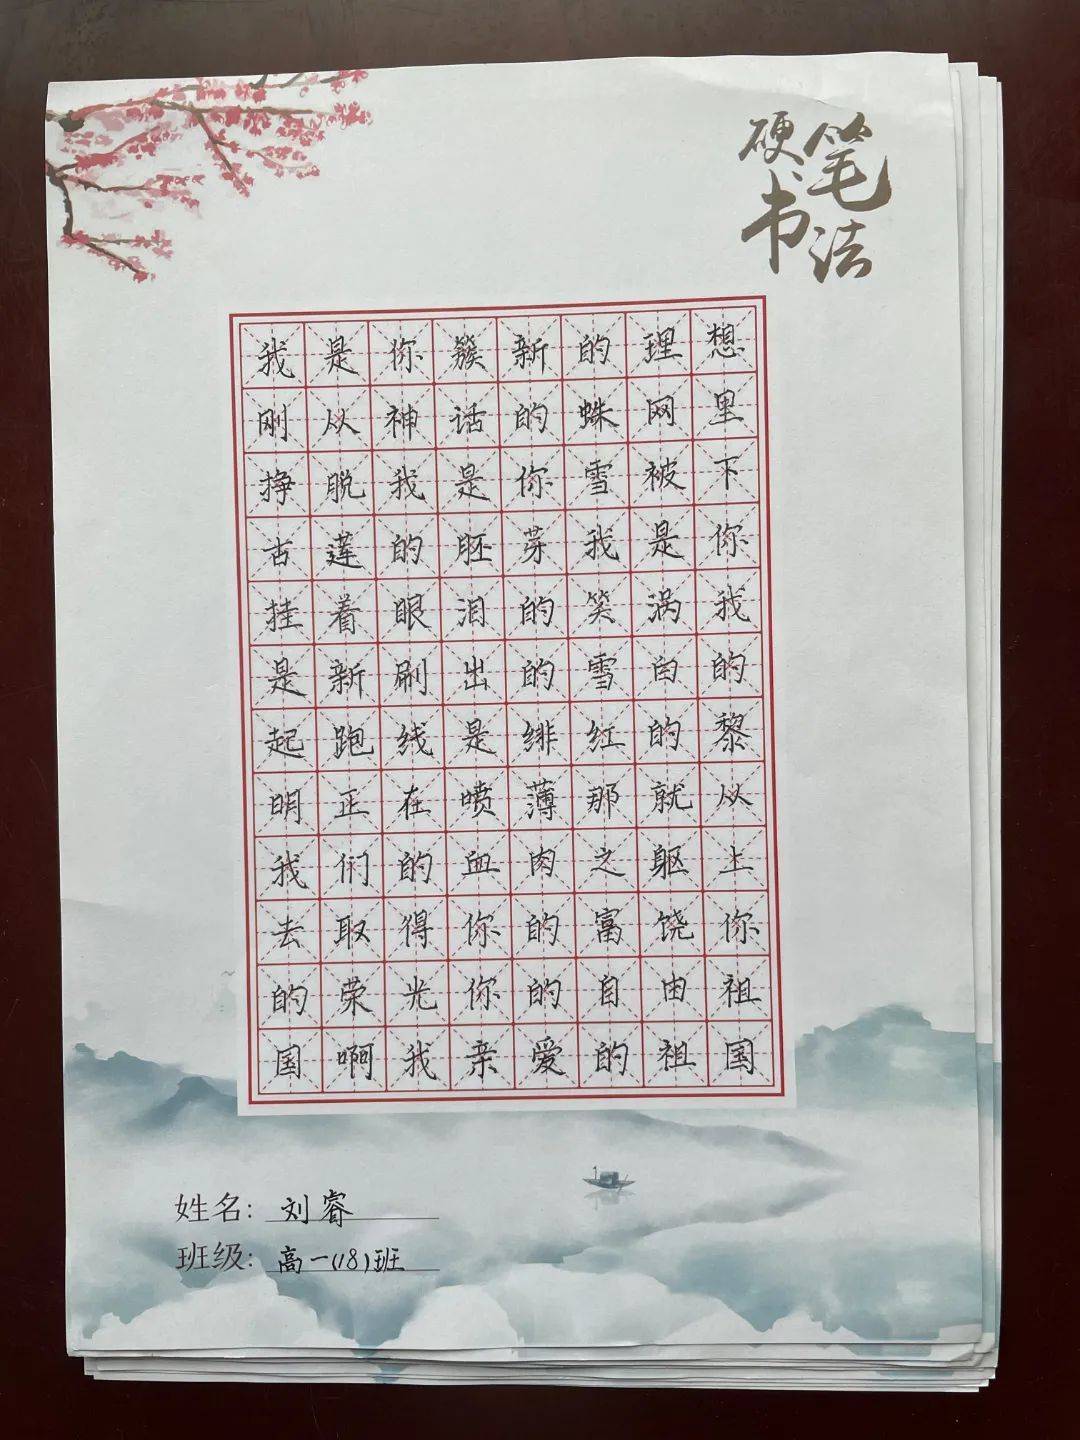 硬笔
书法
我是你簇新的理想
刚从神话的蛛网里
挣脱我是你雪被下
古莲的胚芽我是你
挂着眼泪的笑涡我
是新刷出的雪白的
起跑线是绯红的黎
明正在喷薄那就从
我们的血肉之躯上
去取得你的富饶你
的荣光你的自由祖
国啊我亲爱的祖国
姓名：刘睿
班级：高一(18)班